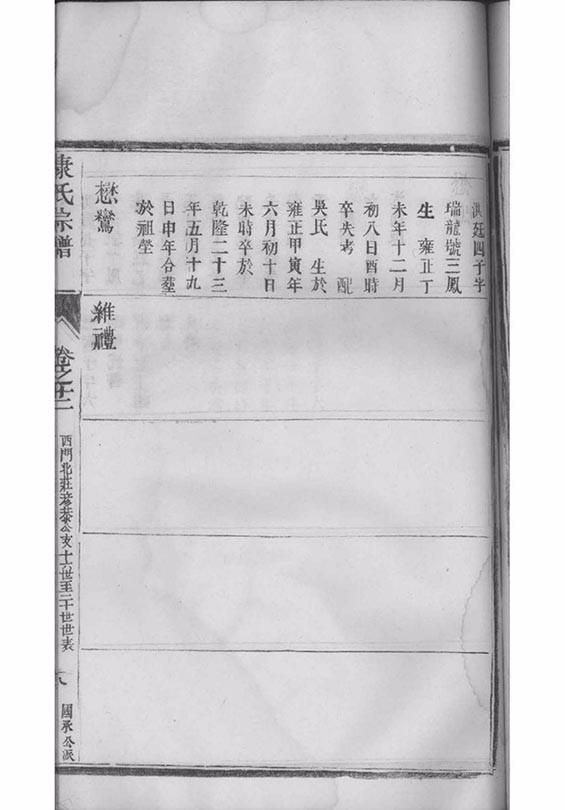 洪廷四子字
瑞龍號三鳳
生 雍正丁
未年十二月
初八日酉時
卒失考 配
吳氏 生於
雍正甲寅年
六月初十日
未時卒於
乾隆二十三
年五月十九
日申年合塟
於祖塋
懋鸞
維禮
康氏宗譜
卷之十二
西門北莊彥恭公支十一世至二十世世表
八
國承公派